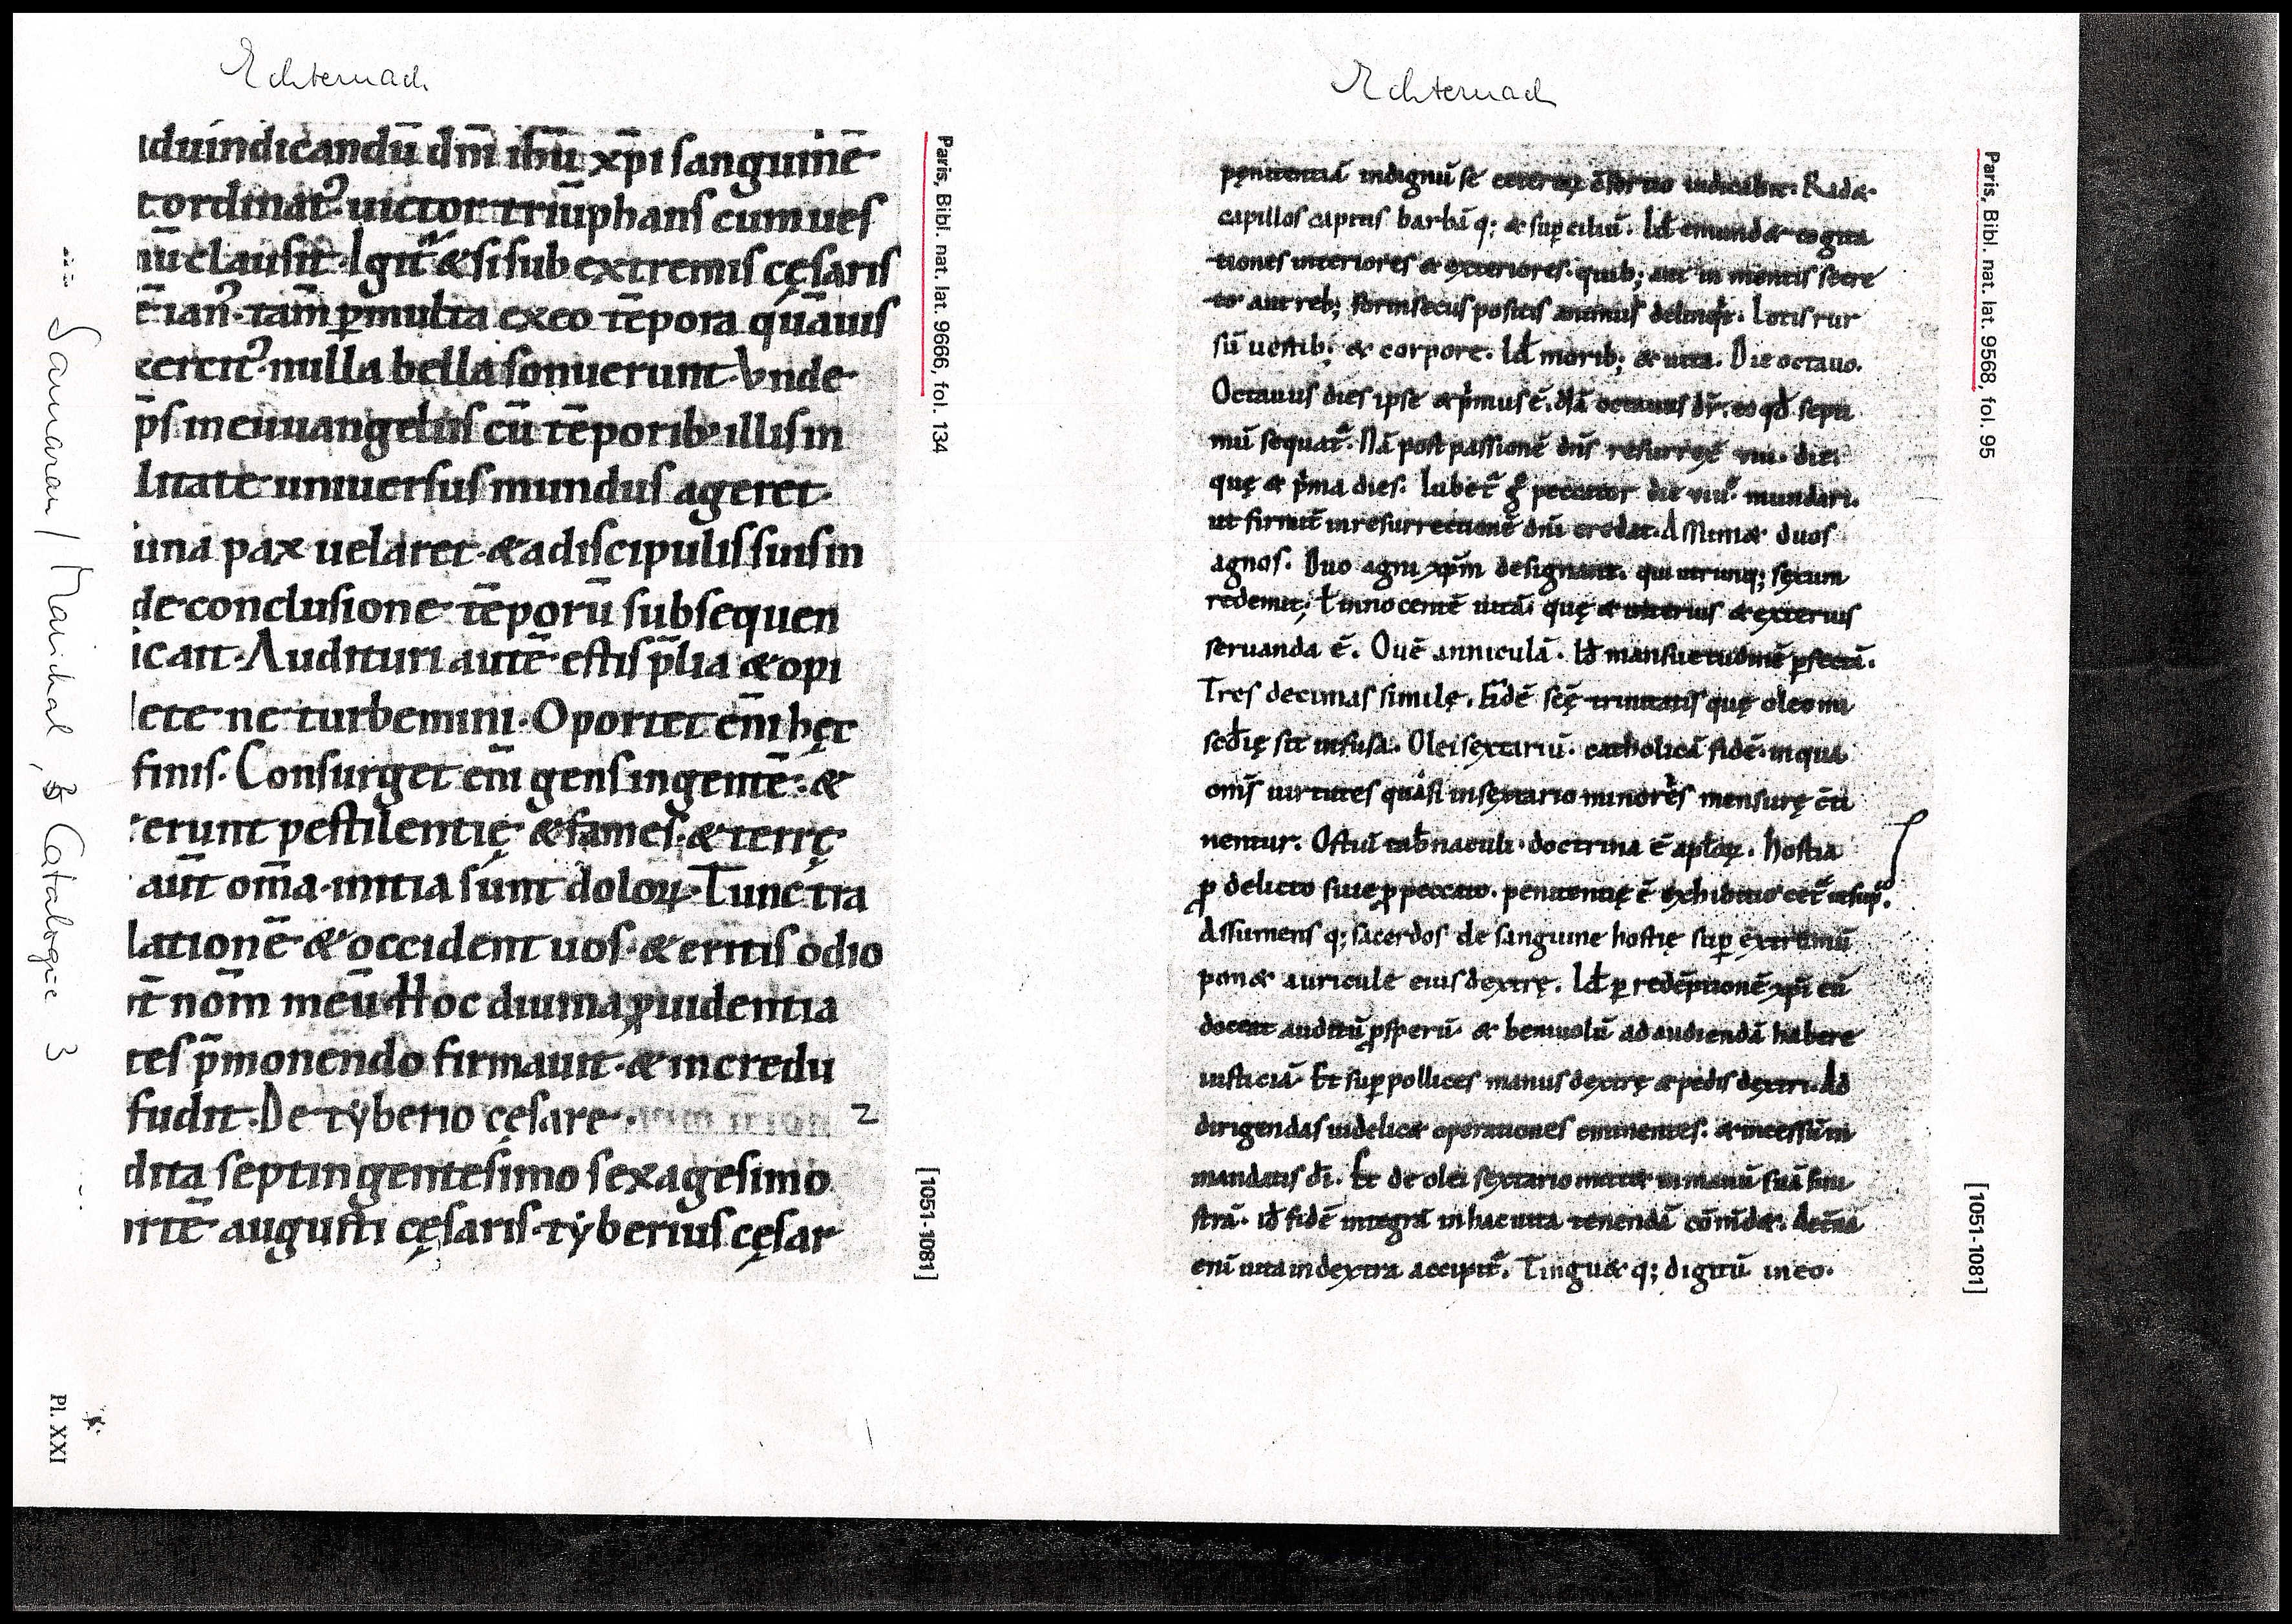 Echternach
aduindicandū dn̄i ih̄u xp̄i sanguinē
t ordinat᷒. uictor triūphans cum ues
nū clausit. Igit᷒ & si sub extremis cęsaris
ē ian᷒. tam̄ ꝑmulta exeo tēpora quāuis
xercit᷒. nulla bella sonuerunt. Vnde
p̄s in euuangeliis cū tēporib; illis in
llitate uniuersus mundus ageret.
una pax uelaret. & a discipulis suis in
de conclusione tēporū subsequen
icait. Audituri autē estis p̄lia & opi
ete ne turbemini. Oportet en̄i hęc
finis. Consurget en̄i gens in gentē: &
erunt pestilentię & fames. & terrę
aūt om̄a. initia sunt doloꝝ. Tunc tra
lationē & occident uos. & eritis odio
t̄ nom̄ meū. Hoc diuina ꝓuidentia
tes p̄monendo firmauit. & incredu
fudit. De tẏberio cęsare.
2
dita septingentesimo sexagesimo
rtē augusti cęsaris. tẏberius cęsar
Paris, Bibl. nat. lat. 9666, fol. 134
[1051-1081]
Samaran / Marichal, Catalogue 3
Pl. XXI
Echternach
pęnitentiā indignū se iudicabit: Rad&
capillos capitis barbā q; & suꝑciliū. Id ē mund& cogita
tiones interiores & exteriores. quib; aut in mentis secre
to aut reb; forinsecus positis animus delinq̄t. Lotis rur
sū uestib; & corpore. Id ē morib; & uita. Die octauo.
Octauus dies ipse & p̄mus ē. octauus dr̄. eo qd̄ septi
mū sequat᷒. Nā post passionē dn̄s resurrexit viii. die.
quę & p̄ma dies. Iubet᷒ g̊ peccator die viii᷒ mundari.
ut firmit᷒ in resurrectionē dn̄i credat. Assum& duos
agnos. Duo agni xp̄m designant. qui utrunq; sexum
redemit; ł innocentē uitā. quę & interius & exterius
seruanda ē. Ouē anniculā. Id mansuetudinē ꝑfectā.
Tres decimas similę. Fidē scę̄ trinitatis quę oleo mi
scd̄ię sit infusa. Olei sextariū. catholicā fidē. in qua
om̄s uirtutes quasi in sextario minores mensurę cti
nentur. Ostiū tab̄naculi. doctrina ē apłoꝝ. Hostia
ꝓ delicto siue ꝓ peccato. penitentię ē exhibitio
Assumens q; sacerdos de sanguine hostię suꝑ extremū
pon& auriculę eius dextrę. Id ꝑ redēptionē xp̄i eū
doceat auditū ꝓsperū & beniuolū ad audiendā habere
iusticiā. Et suꝑ pollices manus dextrę & pedis dextri. Ad
dirigendas uidelic& operationes eminentes. & incessū in
mandatis di̅. Et de olei sextario mitt& in manū suā sini
strā. id fidē integrā in hac uita tenendā cōm̄d&. decimā
eni uita in dextra accipit᷒. Tingu& q; digitū in eo.
Paris, Bibl. nat. lat. 9568, fol. 95
[1051-1081]